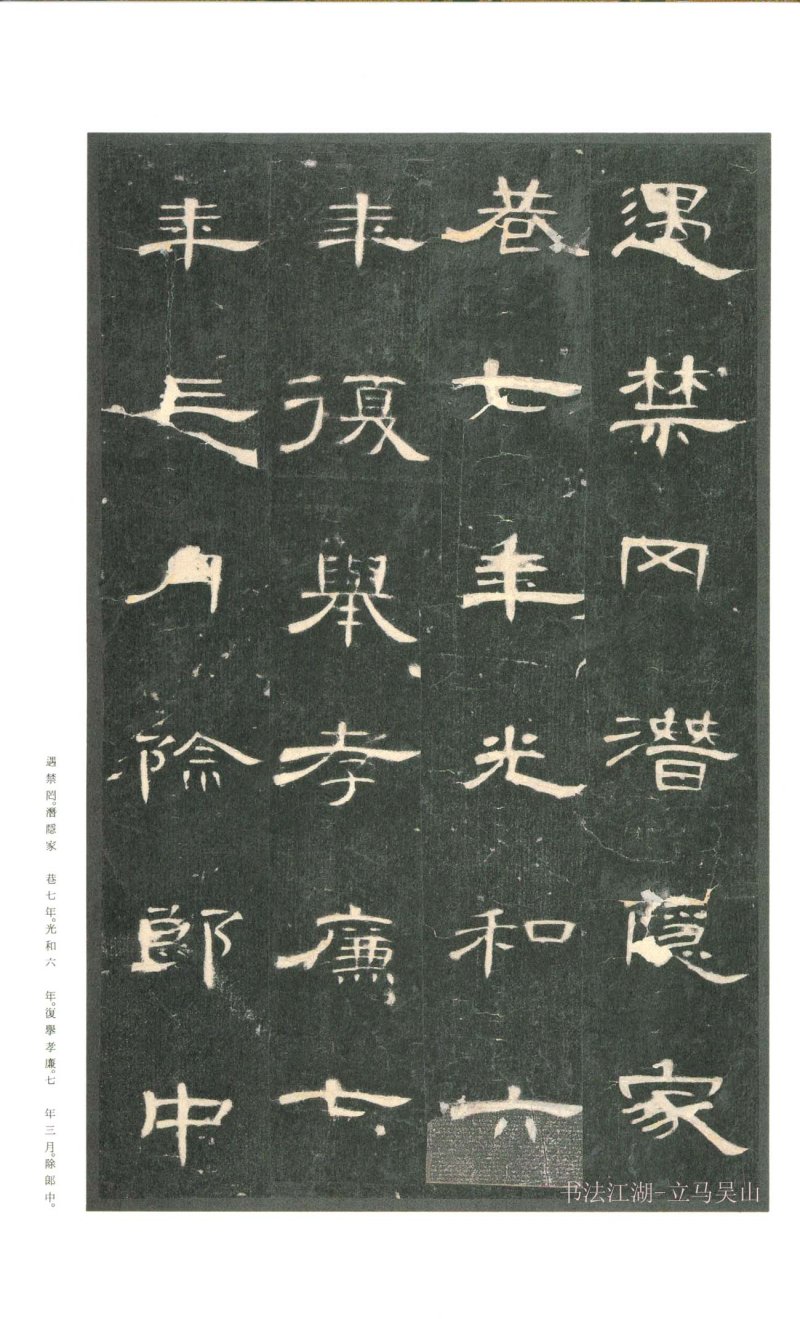 遇禁冈潛隱家
巷七年光和六
年復舉孝廉七
年三月除郎中
遇禁罔。潛隱家　巷七年。光和六　年。復擧孝廉。七　年三月。除郎中。
书法江湖-立马吴山